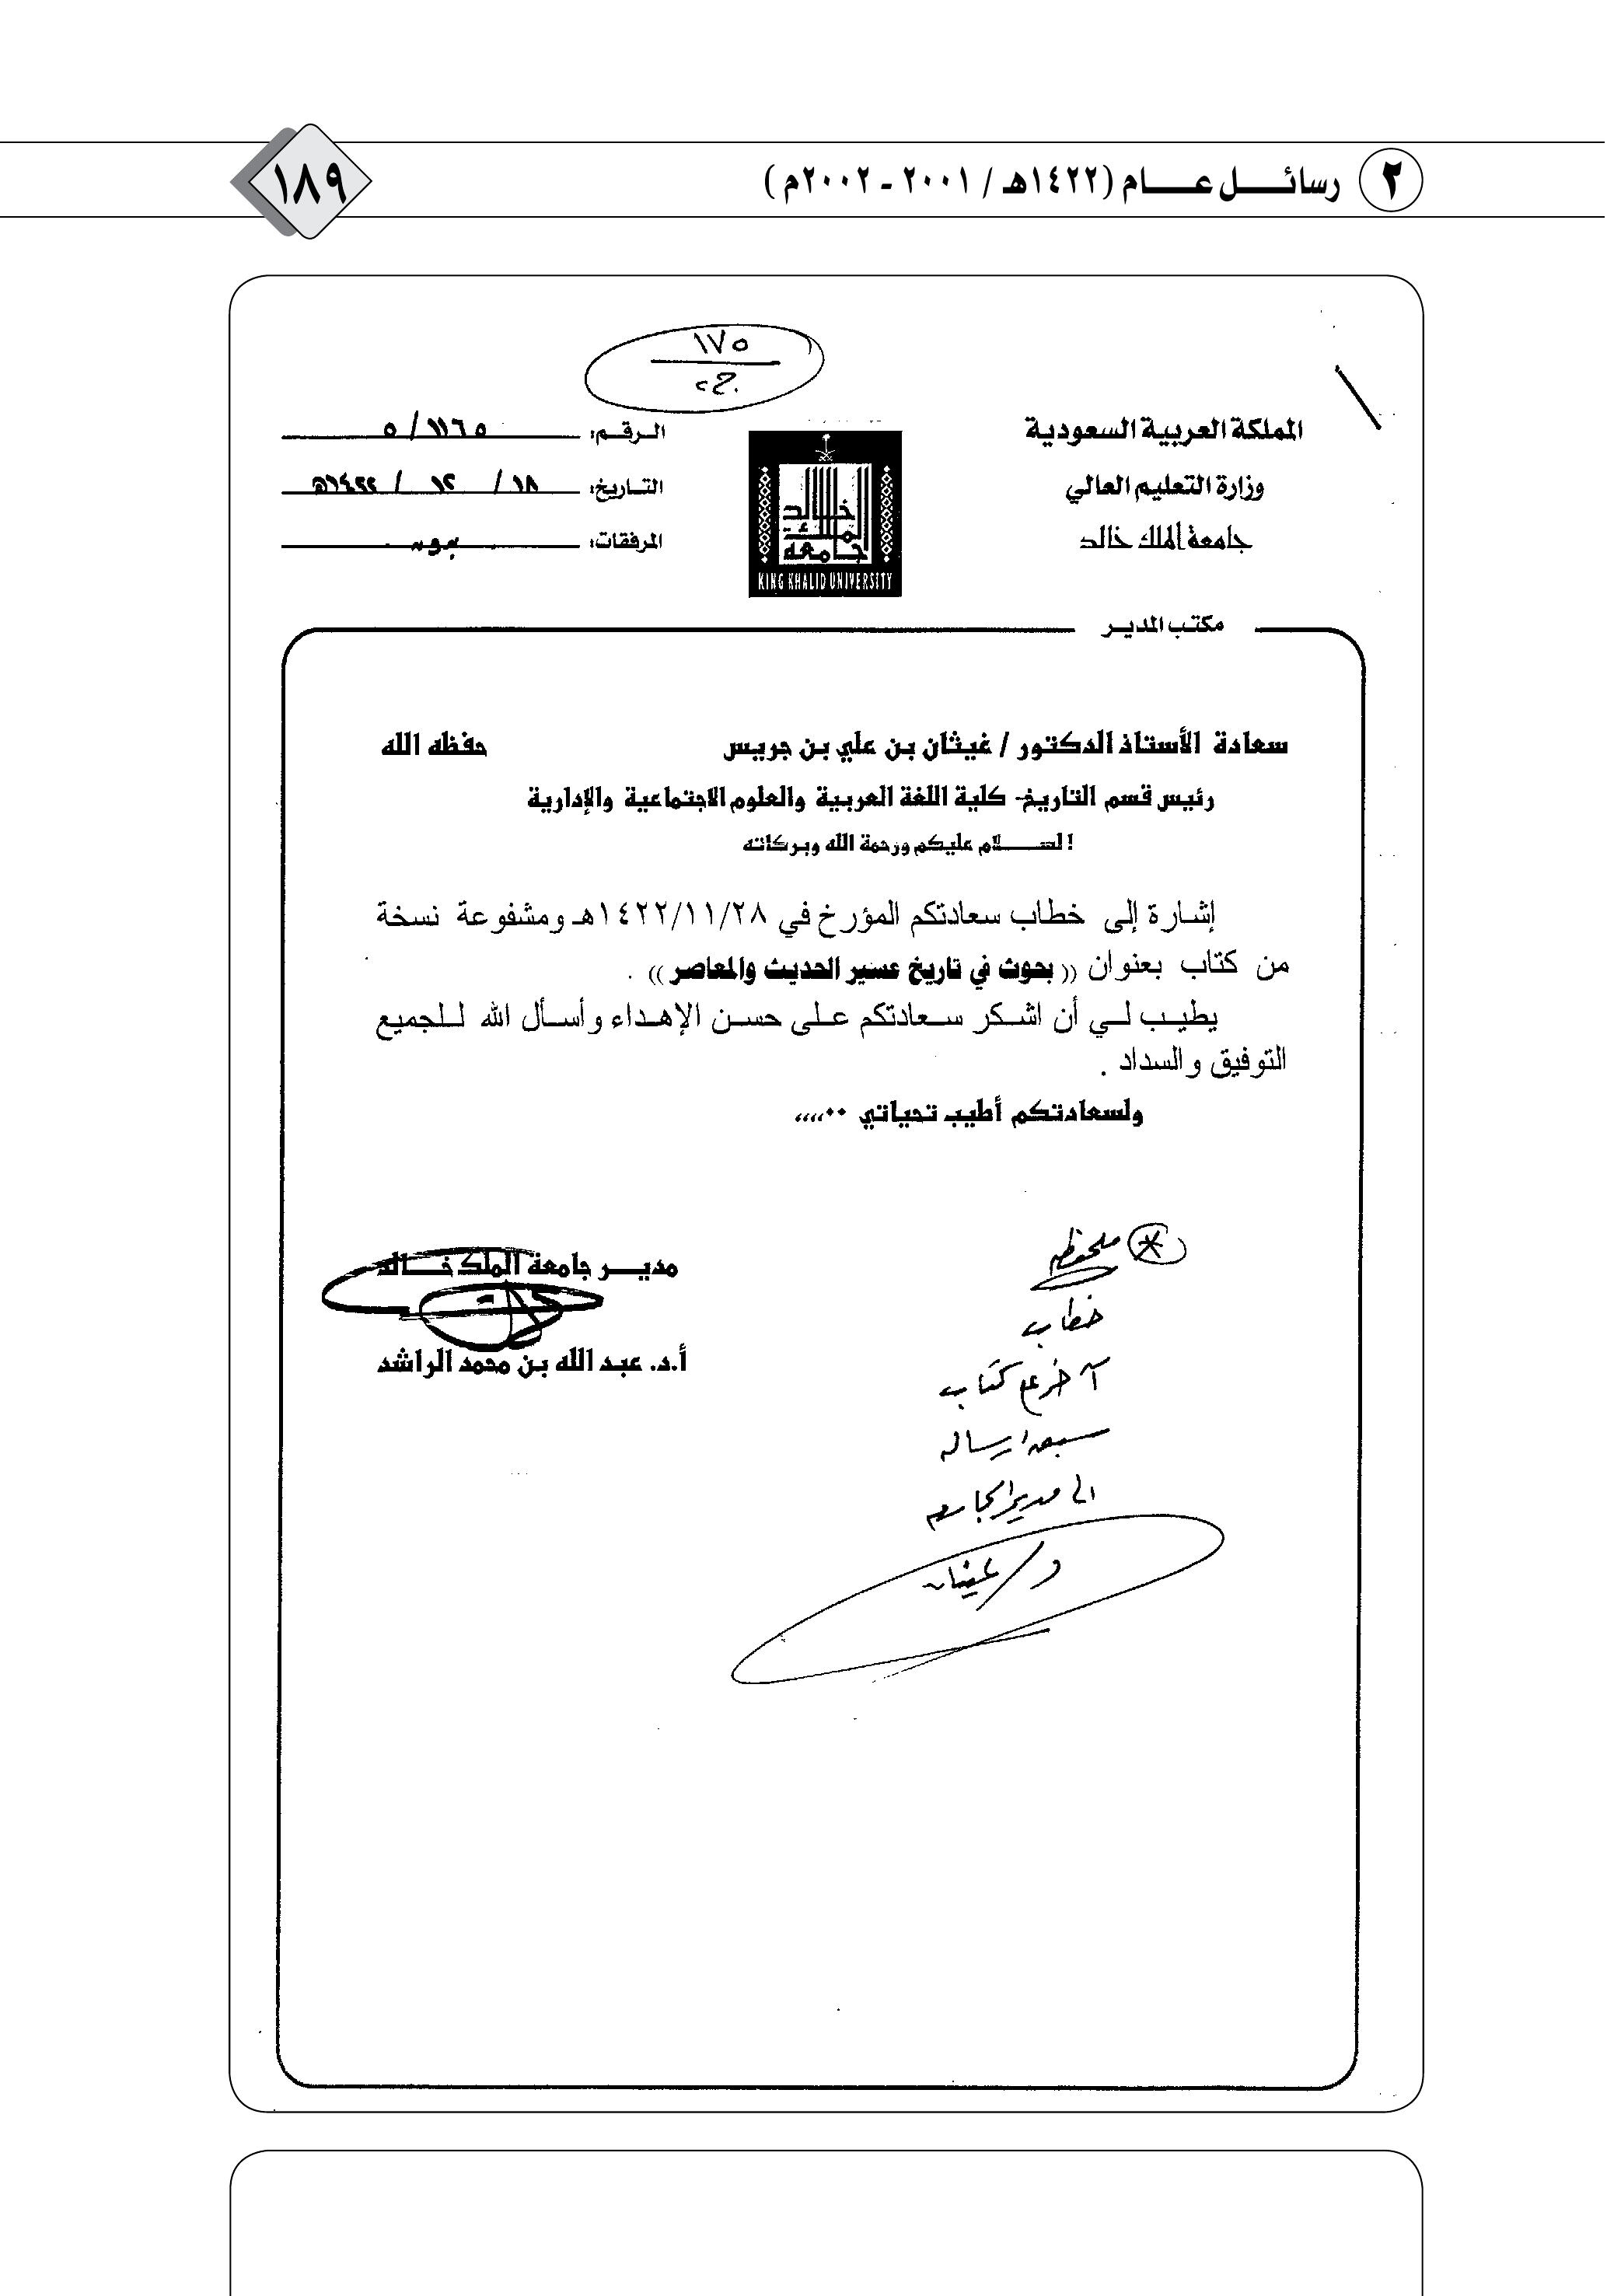 ٢ رسائــل عــــام (١٤٢٢هـ / ٢٠٠١ ـ ٢٠٠٢م )
١٨٩
١٧٥
المملكة العربية السعودية
وزارة التعليم العالي
جامعة الملك خالد
جامعة الملك خالد
KING KHALID UNIVERSITY
الـرقـم: ٥/١١٦٥
التـاريخ: ١٨ / ١٢ / ١٤٢٢هـ
المرفقات: بدون
مكتب المديـر
سعادة الأستاذ الدكتور / غيثان بن علي بن جريس حفظه الله
رئيس قسم التاريخ- كلية اللغة العربية والعلوم الاجتماعية والإدارية
السـلام عليكم ورحمة الله وبركاته
إشارة إلى خطاب سعادتكم المؤرخ في ١٤٢٢/١١/٢٨هـ ومشفوعة نسخة
من كتاب بعنوان (( بحوث في تاريخ عسير الحديث والمعاصر )) .
يطيب لي أن اشكر سعادتكم على حسن الإهداء وأسأل الله للجميع
التوفيق والسداد .
ولسعادتكم أطيب تحياتي ٠٠,,,,
مديـر جامعة الملك خـالد
أ.د. عبد الله بن محمد الراشد
* ملحوظه
خطاب
آخر عن كتاب
سبق ارساله
الى مدير الجامعه
د/ غيثان